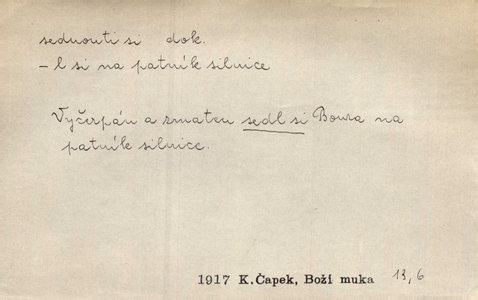 sednouti si dok.
– l si na patník silnice
Vyčerpán a zmaten sedl si Boura na
patník silnice.
1917 K. Čapek, Boží muka 13, 6